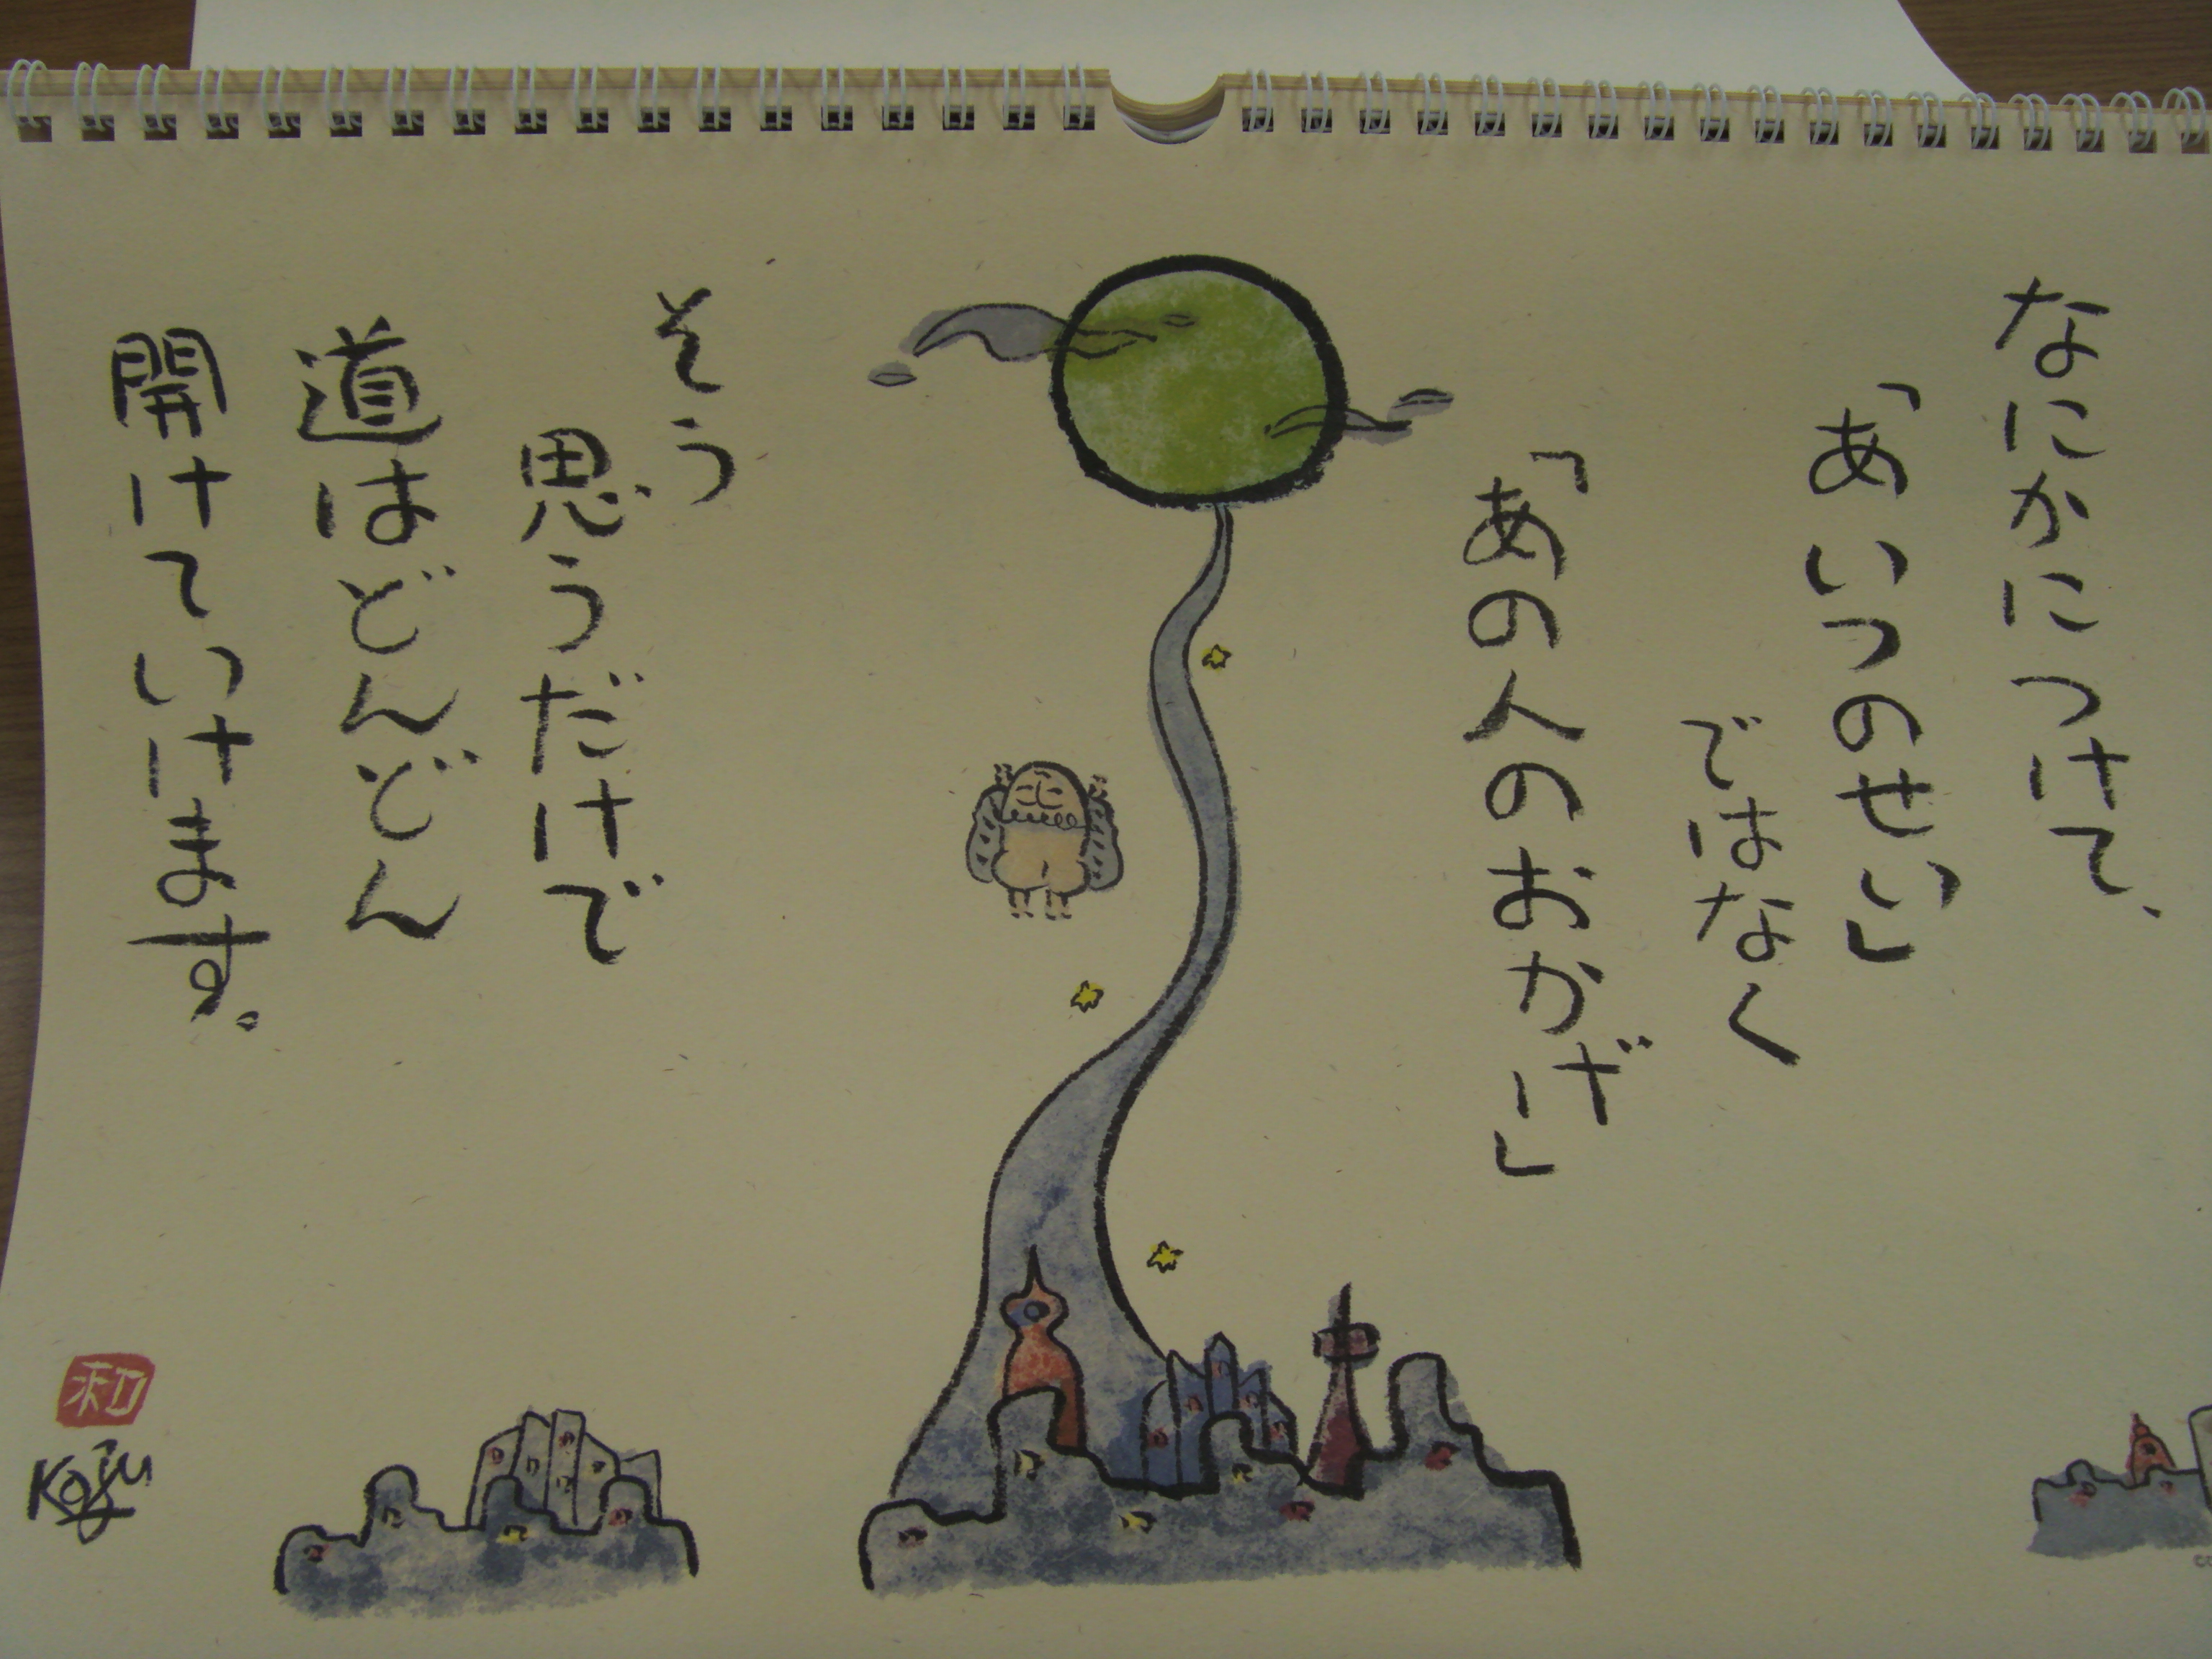 なにかにつけて、
「あいつのせい」
ではなく
「あの人のおかげ」
そう
思うだけで
道はどんどん
開けていけます。
和
Koju